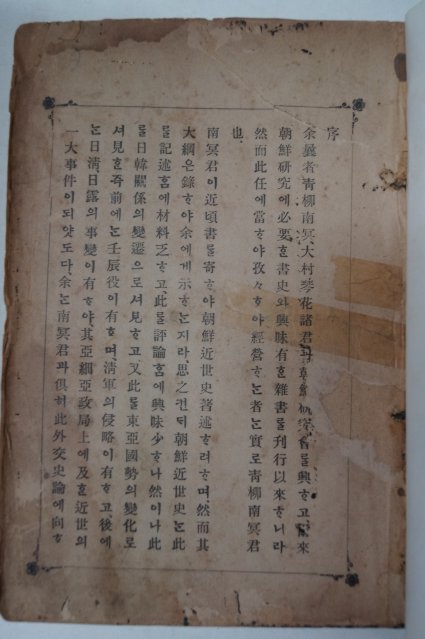 序
余曩者青柳南冥、大村琴花諸君과朝鮮研究會를興ᄒᆞ고 來
朝鮮研究에必要ᄒᆞᆫ書史와興味有ᄒᆞᆫ雜書를刊行以來ᄒᆞ니라
然而此任에當ᄒᆞ야孜々ᄒᆞ야經營ᄒᆞᄂᆞᆫ者ᄂᆞᆫ實로青柳南冥君
也、
南冥君이近頃書를寄ᄒᆞ야朝鮮近世史著述ᄒᆞ려ᄒᆞ며然而其
大綱은錄ᄒᆞ야余에게示ᄒᆞᄂᆞᆫ지라、思之컨ᄃᆡ朝鮮近世史ᄂᆞᆫ此
를記述ᄒᆞᆷ에材料乏ᄒᆞ고此를評論ᄒᆞᆷ에興味少ᄒᆞ나然이나此
를日韓關係의變遷으로셔見ᄒᆞ고又此를東亞國勢의變化로
셔見ᄒᆞᆯᄌᆡ前에ᄂᆞᆫ壬辰役이有ᄒᆞ며、清軍의侵略이有ᄒᆞ고、後에
ᄂᆞᆫ日清、日露의事變이有ᄒᆞ야、其亞細亞政局上에及ᄒᆞᆫ近世의
一大事件이되얏도다、余ᄂᆞᆫ南冥君과俱히此外交史論에向ᄒᆞ